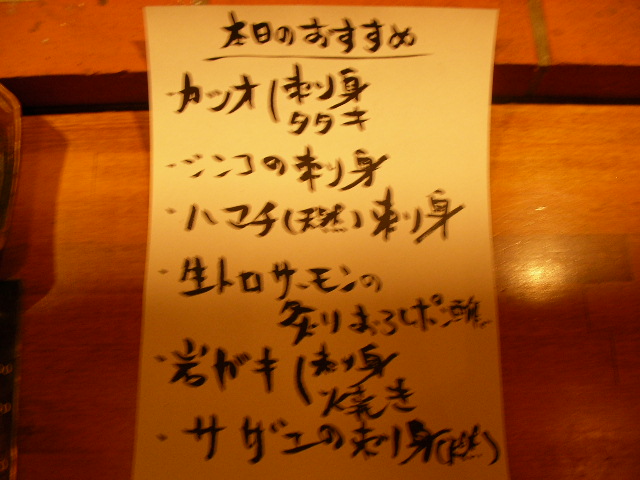 本日のおすすめ
・カツオ(刺身
タタキ
・シンコの刺身
・ハマチ(天然)刺身
・生トロサーモンの
炙りおろしポン酢
・岩ガキ(刺身
焼き
・サザエの刺身(天然)